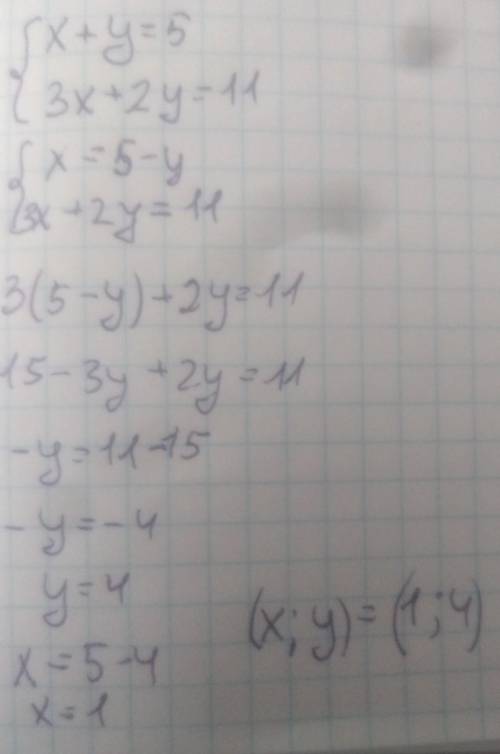 { x + y = 5
{ 3x + 2y = 11
{ x = 5 - y
{ 3x + 2y = 11
3(5 - y) + 2y = 11
15 - 3y + 2y = 11
- y = 11 - 15
- y = - 4
y = 4
x = 5 - 4
x = 1
(x; y) = (1; 4)